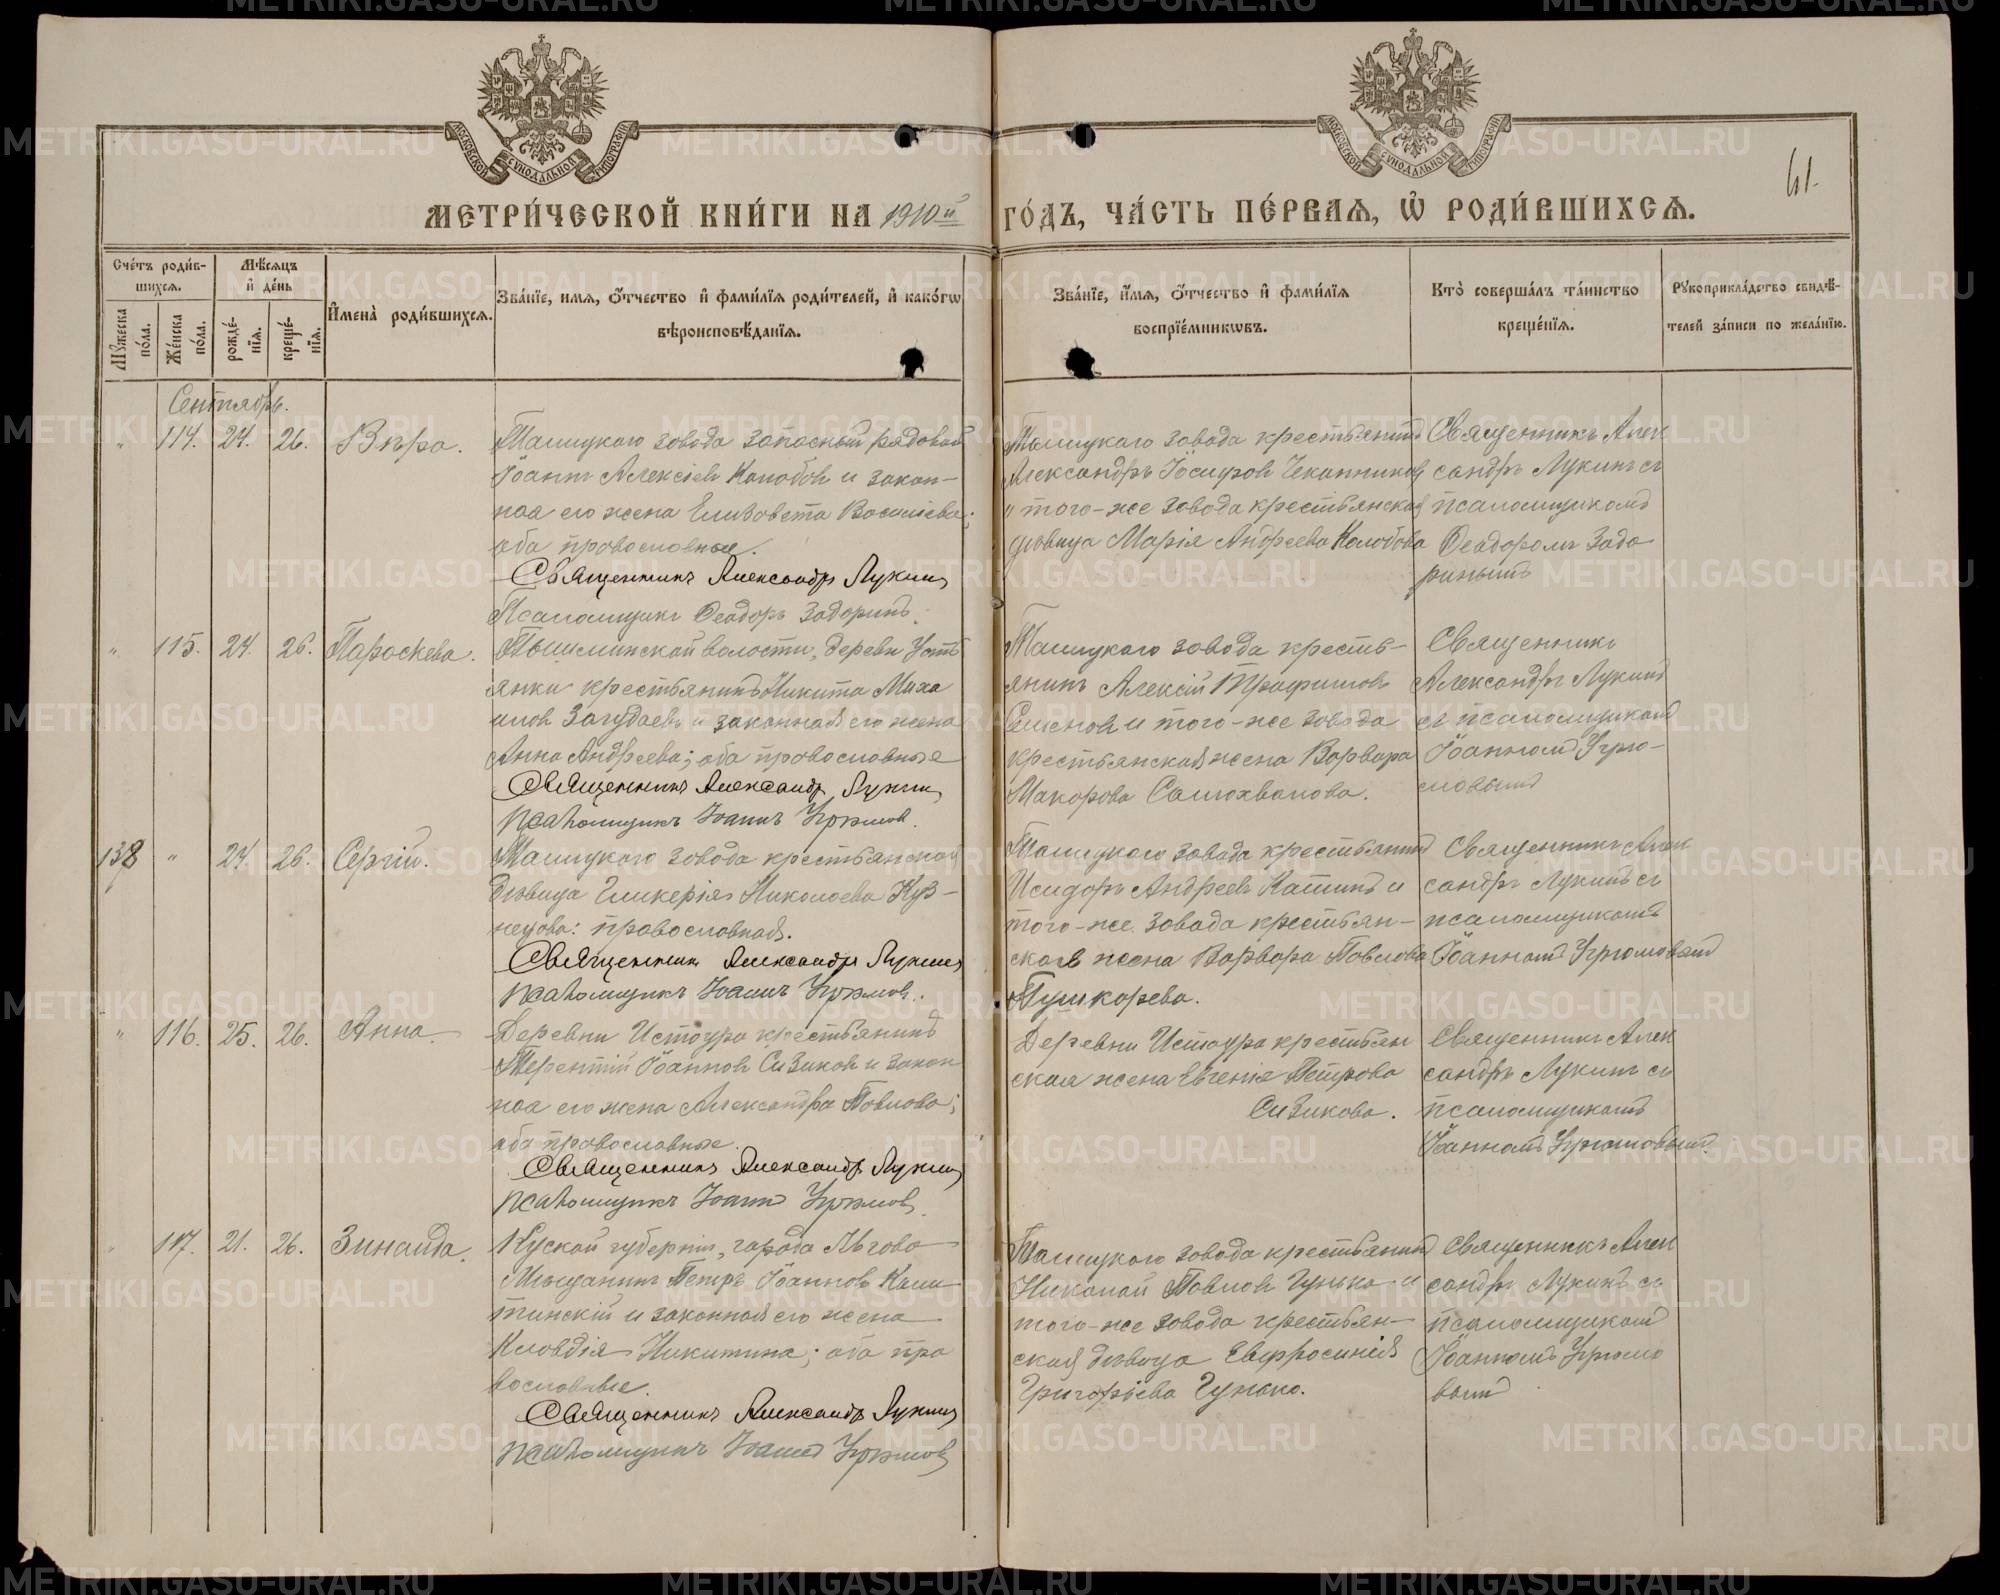 МЕТРИ́ЧЕСКОЙ КНИ́ГИ НА 1910й ГО́ДЪ, ЧА́СТЬ ПЕ́РВАѦ, Ѡ҆ РОДИ́ВШИХСѦ.
61.
МОСКОВСКОЙ СѴНОДАЛЬНОЙ ТИПОГРАФІИ
МОСКОВСКОЙ СѴНОДАЛЬНОЙ ТИПОГРАФІИ
Сче́тъ роди́вшихсѧ.
Мѣ́сѧцъ и҆ де́нь
Мꙋ́жеска по́ла.
Же́нска по́ла.
рожде́нїѧ.
креще́нїѧ.
И҆мена̀ роди́вшихсѧ.
Зва́нїе, имѧ, ѻ҆́тчество и҆ фами́лїѧ роди́телей, и҆ како́гѡ
вѣроисповѣ́данїѧ.
Зва́нїе, и҆́мѧ, ѻ҆́тчество и҆ фами́лїѧ
воспрїе́мникѡвъ.
Кто̀ соверша́лъ та́инство
креще́нїѧ.
Рꙋкоприкла́дство свидѣ́-
телей за́писи по жела́нїю.
Сентябрь.
" 114. 24. 26. Вѣра.
Талицкаго завода запасный рядовой
Іоаннъ Алексіевъ Колобовъ и закон-
ная его жена Елизавета Василіева;
оба православные.
Священникъ Александръ Лукинъ
Псаломщикъ Ѳеодоръ Задоринъ.
Талицкаго завода крестьянинъ
Александръ Іосифовъ Чекалниковъ
и того-же завода крестьянская
дѣвица Марія Андреева Колобова
Священникъ Алек
сандръ Лукинъ съ
псаломщикомъ
Ѳеодоромъ Задо
ринымъ
" 115. 24. 26. Параскева.
Пышминской волости, деревни Усть
янки крестьянинъ Никита Миха
иловъ Загудаевъ и законная его жена
Анна Андреева; оба православные
Священникъ Александръ Лукинъ
Псаломщикъ Іоаннъ Угрюмовъ.
Талицкаго завода кресть-
янинъ Алексій Трофимовъ
Семеновъ и того-же завода
крестьянская жена Варвара
Макарова Самохвалова.
Священникъ
Александръ Лукинъ
съ псаломщикомъ
Іоанномъ Угрю-
мовымъ
138 " 24. 26. Сергій.
Талицкаго завода крестьянская
дѣвица Гликерія Николаева Куз-
нецова: православная.
Священникъ Александръ Лукинъ
Псаломщикъ Іоаннъ Угрюмовъ.
Талицкаго завода крестьянинъ
Исидоръ Андреевъ Катинъ и
того-же завода крестьян-
ская жена Варвара Павлова
Пушкарева.
Священникъ Алек
сандръ Лукинъ съ
псаломщикомъ
Іоанномъ Угрюмовымъ
" 116. 25. 26. Анна.
Деревни Истоура крестьянинъ
Терентій Іоанновъ Сизиковъ и закон
ная его жена Александра Павлова;
оба православные.
Священникъ Александръ Лукинъ
Псаломщикъ Іоаннъ Угрюмовъ.
Деревни Истоура крестьян
ская жена Евгенія Петрова
Сизикова.
Священникъ Алек
сандръ Лукинъ съ
псаломщикомъ
Іоанномъ Угрюмовымъ.
" 117. 21. 26. Зинаида.
Курской губерніи, города Льгова
Мѣщанинъ Петръ Іоанновъ Кали
тинскій и законная его жена
Клавдія Никитина; оба пра
вославные.
Священникъ Александръ Лукинъ
Псаломщикъ Іоаннъ Угрюмовъ
Талицкаго завода крестьянинъ
Николай Павловъ Гунько и
того-же завода крестьян-
ская дѣвица Евфросинія
Григорьева Гунько.
Священникъ Алек
сандръ Лукинъ съ
псаломщикомъ
Іоанномъ Угрюмо
вымъ
METRIKI.GASO-URAL.RU